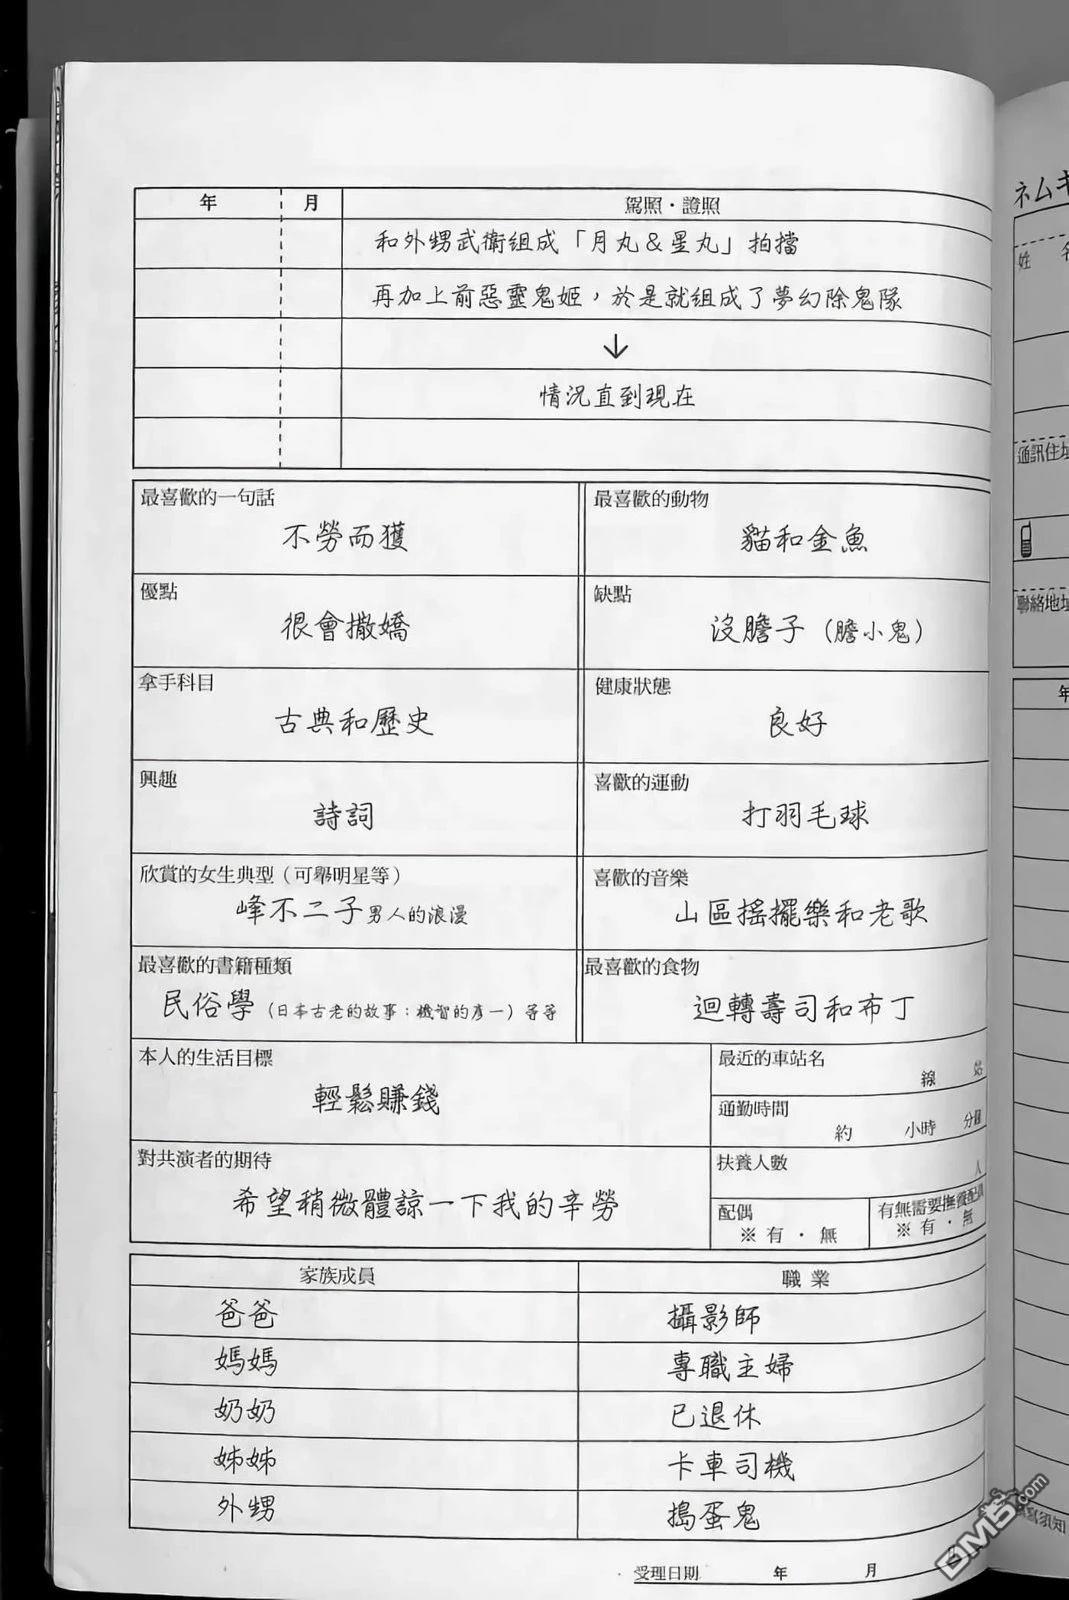 年 月 駕照・證照
和外甥武衛組成「月丸＆星丸」拍擋
再加上前惡靈鬼姬，於是就組成了夢幻除鬼隊
↓
情況直到現在
最喜歡的一句話
不勞而獲
最喜歡的動物
貓和金魚
優點
很會撒嬌
缺點
沒膽子（膽小鬼）
拿手科目
古典和歷史
健康狀態
良好
興趣
詩詞
喜歡的運動
打羽毛球
欣賞的女生典型（可舉明星等）
峰不二子男人的浪漫
喜歡的音樂
山區搖擺樂和老歌
最喜歡的書籍種類
民俗學（日本古老的故事：機智的彥一）等等
最喜歡的食物
迴轉壽司和布丁
本人的生活目標
輕鬆賺錢
最近的車站名
線 站
通勤時間
約 小時 分鐘
對共演者的期待
希望稍微體諒一下我的辛勞
扶養人數
人
配偶
※ 有 ・ 無
有無需要撫養配偶
※ 有 ・ 無
家族成員 職業
爸爸 攝影師
媽媽 專職主婦
奶奶 已退休
姊姊 卡車司機
外甥 搗蛋鬼
受理日期 年 月
ネムキ
姓 名
通訊住址
聯絡地址
年
填寫須知
DM5.com